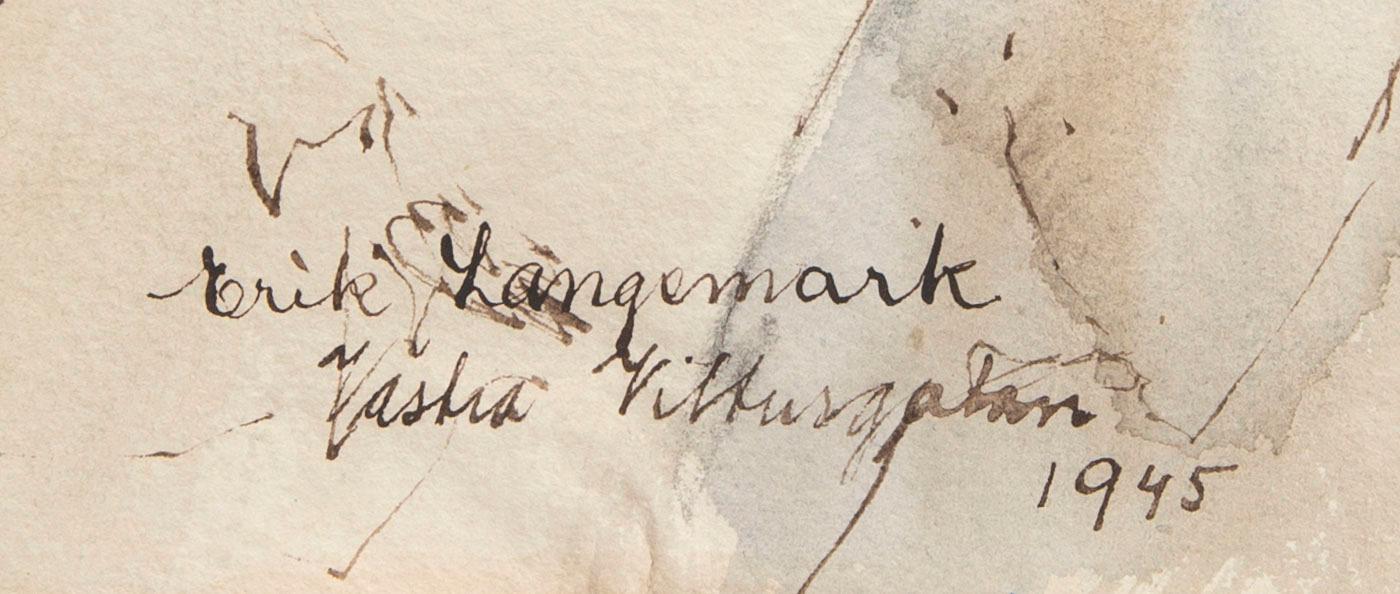 Erik Langemark
Vastra Vittusgatan
1945